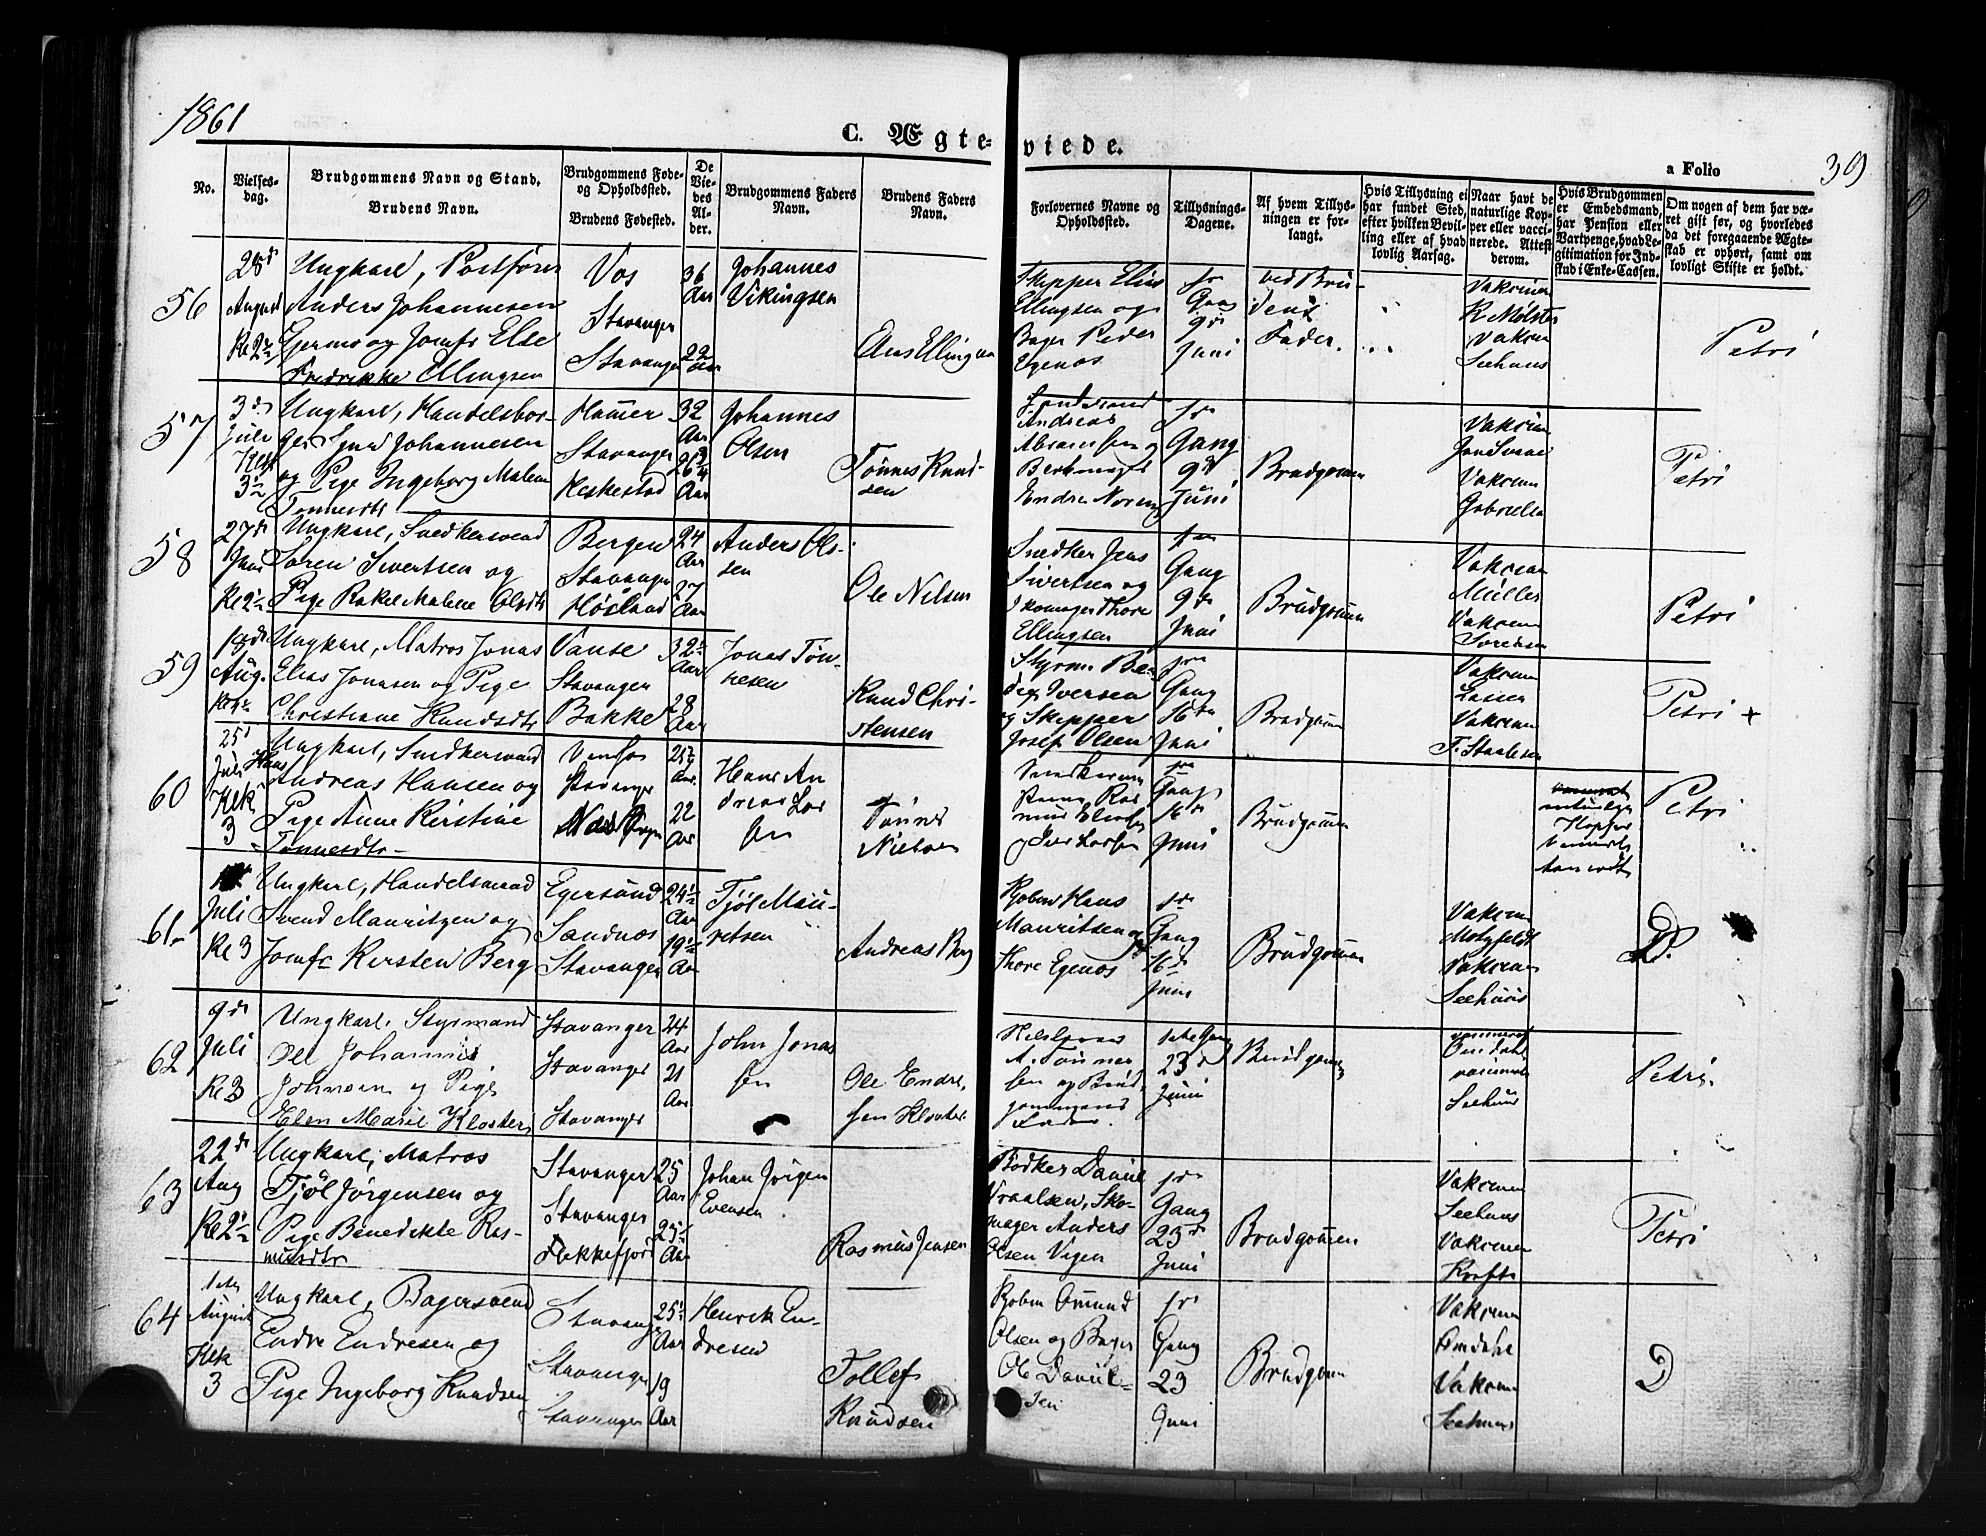 1861
C. Ægteviede.
a Folio
39
No.
Vielsesdag.
Brudgommens Navn og Stand.
Brudens Navn.
Brudgommens Føde- og Opholdssted.
Brudens Fødested.
De Viedes Alder.
Brudgommens Faders Navn.
Brudens Faders Navn.
Forlovernes Navne og Opholdssted.
Tillysnings-Dagene.
Af hvem Tillysningen er forlangt.
Hvis Tillysning ei har fundet Sted, efter hvilken Bevilling eller af hvad lovlig Aarsag.
Naar havt de naturlige Kopper eller vaccinerede. Attest derom.
Hvis Brudgommen er Embedsmand, har Pension eller Vartpenge, hvad Legitimation for Indskud i Enke-Cassen.
Om nogen af dem har været gift før, og hvorledes da det foregaaende Ægteskab er ophørt, samt om lovligt Skifte er holdt.
56
28de August
Ungkarl, Postfører
Anders Johannesen
Gjerme og Jomfr Else
Fredrikke Ellingsen
Vos
Stavanger
Stavanger
36 Aar
22 Aar
Johannes
Vikingsen
Skipper Elias
Ellingsen og
Bager Peder
Egenes
9de
Juni
ved Brudens
Fader
Vakcinen
R Mølster
Vakcin
Seehuus
Petri
57
3de
Juli
Ungkarl, Handelsborger
Johannesen
og Pige Ingeborg Malene
Tønnesdtr
Hammer
Stavanger
Heskestad
32
Aar
Johannes
Olsen
Tønnes Knudsen
Andreas
Abrahamsen og
Gang
9de
Juni
Brudgommen
Vakcinen
Vakcinen
Petri
58
27de
Juni
Ungkarl, Snedkersvend
Søren Sivertsen og
Pige Rakel Malene Olsdtr
Bergen
Stavanger
Høiland
24
Aar
27
Aar
Anders Olsen
Ole Nilsen
Snedker Jens
Sivertsen og
Skomager Thore
Ellingsen
Gang
9de
Juni
Brudgommen
Vakcinen
Müller
Vakcinen
Sørensen
Petri
59
Aug.
Ungkarl, Matros Jonas
Elias Jonasen og Pige
Christiane Knudsdtr
Vanse
Stavanger
Bakke
32
Aar
28
Aar
Jonas Tønnesen
Knud Christensen
Iversen
og Skipper
Josef Olsen
Gang
16de
Juni
Brudgommen
Vakcinen
Lassen
Vakcinen
Petri +
60
25de
Juli
Klk
3
Ungkarl, Snedkersvend
Hans
Andreas Hansen og
Pige Anne Kirstine
Tønnesdtr
Stavanger
22
Aar
Hans Andreas
Larsen
Tønnes
Nielsen
Gang
16de
Juni
Brudgommen
Petri
61
Juli
Kl 3
Ungkarl, Handelsmand
Svend Mauritzen og
Jomfr Kirsten Berg
Egersund
Sandnes
Stavanger
Aar
Aar
Tjöl Mauritsen
Andreas Berg
Hans
Mauritsen og
Thore Egenes
Gang
16de
Juni
Brudgommen
Vakcinen
Motzfeldt
Vakcinen
Seehuus
D.
62
9de
Juli
Kl 3
Ungkarl, Styrmand
Ole Johannes
Johnsen og Pige
Elen Marie Kloster
Stavanger
Stavanger
Stavanger
24
Aar
21
Aar
John Jonassen
Ole Endresen Kloster
A. Tønnessen og Brudgommens
Fader.
23de
Juni
Brudgommen
Omdahl
Seehuus
Petri.
63
22de
Aug
Ungkarl, Matros
Tjöl Jørgensen og
Pige Benedikte Rasmusdtr
Stavanger
Stavanger
Flekkefjord
25
Aar
Aar
Johan Jörgen
Evensen
Rasmus Jensen
Bødker Daniel
Vraalsen, Skomager Anders
Olsen Vigen
Gang
23de
Juni
Brudgommen
Vakcinen
Seehuus
Vakcinen
Krafts
Petri
64
1ste
August
Klk
3
Ungkarl, Bagersvend
Endre Endresen og
Pige Ingeborg Knudsen
Stavanger
Stavanger
Stavanger
Aar
19
Aar
Henrik Endresen
Tollef
Knudsen
Olsen og Bager
Ole Danielsen
Gang
23
Juni
Brudgommen
Vakcinen
Omdahl
Vakcinen
Seehuus
D